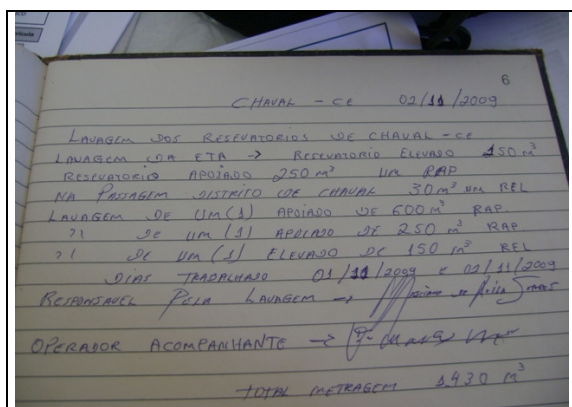 6
CHAVAL - CE 02/11/2009
LAVAGEM DOS RESEVATORIOS DE CHAVAL - CE
LAVAGEM DA ETA → RESEVATORIO ELEVADO 150 m³
RESEVATORIO APOIADO 250 m³ UM RAP
NA PASSAGEM DISTRITO DE CHAVAL 30 m³ UM REL
LAVAGEM DE UM (1) APOIADO DE 600 m³ RAP
" DE UM (1) APOIADO DE 250 m³ RAP
" DE UM (1) ELEVADO DE 150 m³ REL
DIAS TRABALHADO 01/11/2009 e 02/11/2009
RESPONSAVEL PELA LAVAGEM →
OPERADOR ACOMPANHANTE →
TOTAL METRAGEM 1430 m³